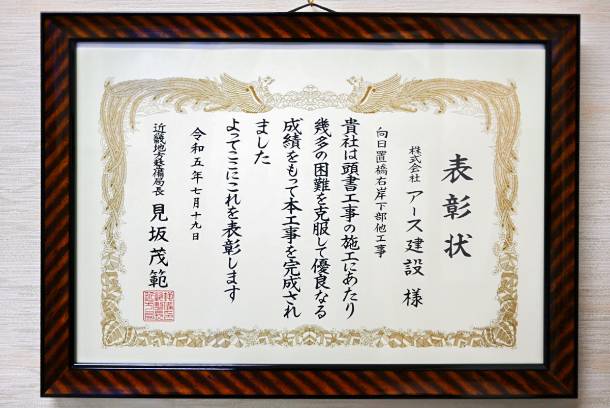 表彰状
株式会社 アース建設 様
向日置橋右岸下部他工事
貴社は頭書工事の施工にあたり
幾多の困難を克服して優良なる
成績をもって本工事を完成され
ました
よってここにこれを表彰します
令和五年七月十九日
近畿地方整備局長 見坂茂範